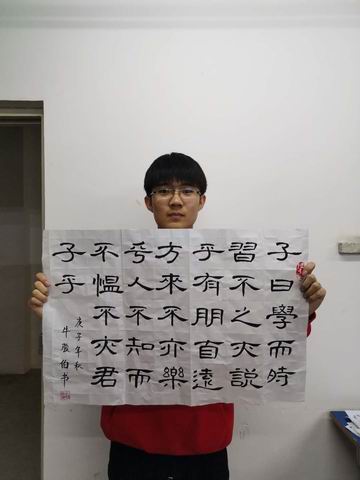 子曰學而時
習不之亦說
乎有朋自遠
方來不亦樂
乎人不知而
不愠不亦君
子乎
庚子年秋
牛伯书